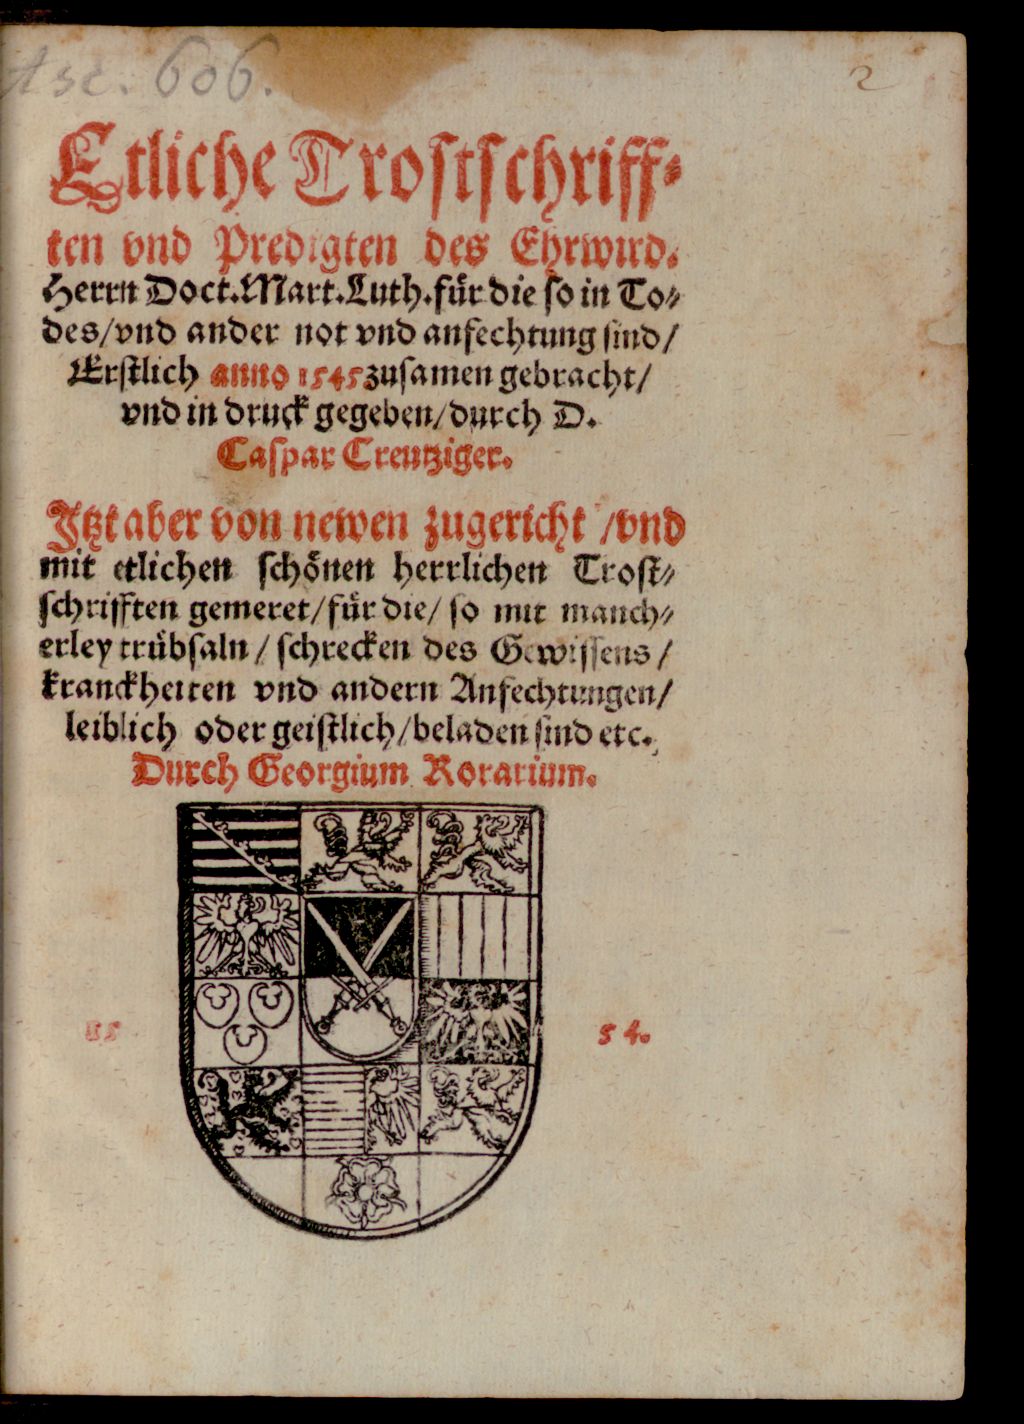 Asc. 606.
2
Etliche Trostschriff⸗
ten vnd Predigten des Ehrwird.
Herrn Doct. Mart. Luth. für die so in To⸗
des/vnd ander not vnd anfechtung sind/
Erstlich anno 1545 zusamen gebracht/
vnd in druck gegeben/durch D.
Caspar Creutziger.
Jtzt aber von newen zugericht /vnd
mit etlichen schönen herrlichen Trost⸗
schrifften gemeret/für die/ so mit manch⸗
erley trübsaln / schrecken des Gewissens /
kranckheiten vnd andern Anfechtungen/
leiblich oder geistlich/beladen sind etc.
Durch Georgium Rorarium.
15 54.